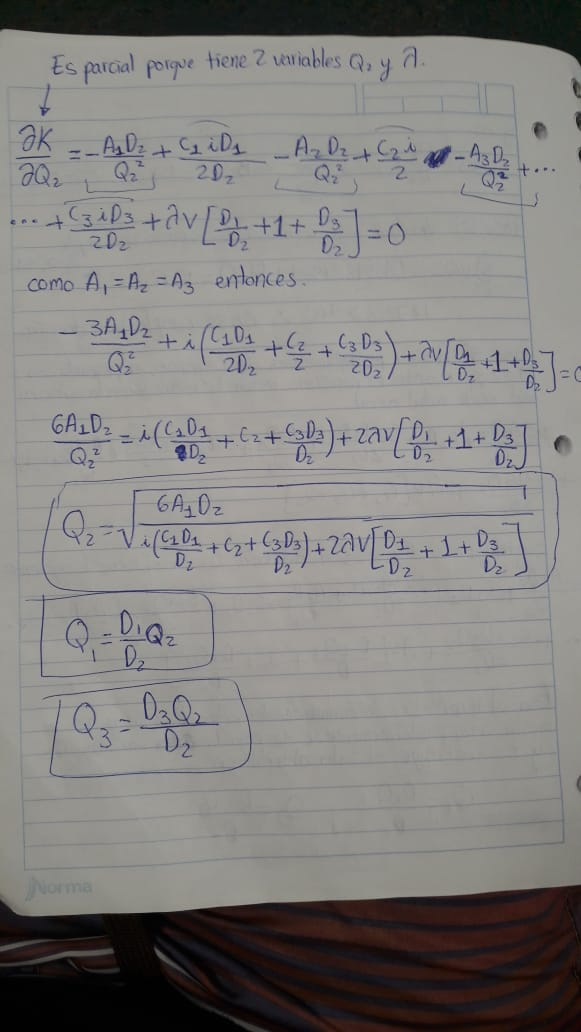 Es parcial porque tiene 2 variables Q₂ y λ.
∂K/∂Q₂ = - A₁D₂/Q₂² + C₁iD₁/2D₂ - A₂D₂/Q₂² + C₂i/2 - A₃D₂/Q₂² + ...
... + C₃iD₃/2D₂ + λV[D₁/D₂ + 1 + D₃/D₂] = 0
como A₁ = A₂ = A₃ entonces.
- 3A₁D₂/Q₂² + i(C₁D₁/2D₂ + C₂/2 + C₃D₃/2D₂) + λV[D₁/D₂ + 1 + D₃/D₂] = 0
6A₁D₂/Q₂² = i(C₁D₁/D₂ + C₂ + C₃D₃/D₂) + 2λV[D₁/D₂ + 1 + D₃/D₂]
Q₂ = √(6A₁D₂/(i(C₁D₁/D₂ + C₂ + C₃D₃/D₂) + 2λV[D₁/D₂ + 1 + D₃/D₂]))
Q₁ = D₁/D₂ Q₂
Q₃ = D₃Q₂/D₂
Norma